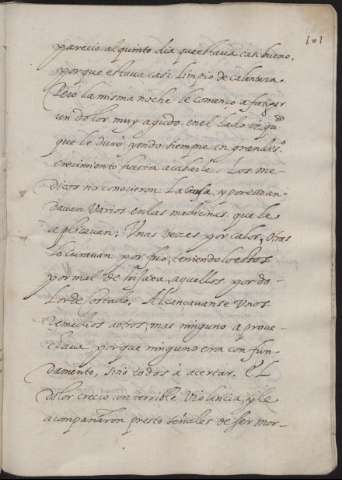 101
parecio al quinto dia que estaua casi bueno,
porque estaua casi limpio de calentura.
Pero la misma noche le començo a fatigar
un dolor muy agudo en el lado izqu.do
que le duró yendo siempre en grandis.o
crecimiento hasta acabarle. Los me-
dicos no conocieron la causa, y por esso an-
dauan varios en las medicinas, que le
aplicauan; Unas vezes por calor, otras
lo curauan por frio, teniendolo estos
por mal de hijada, aquellos por do-
lor de costado. Alcançauanse unos
remedios a otros, mas ninguno aproue-
chaua porque ninguno era con fun-
damento, sino todos a acertar. El
dolor crecio con terrible violencia, y le
acompañaron presto señales de ser mor-